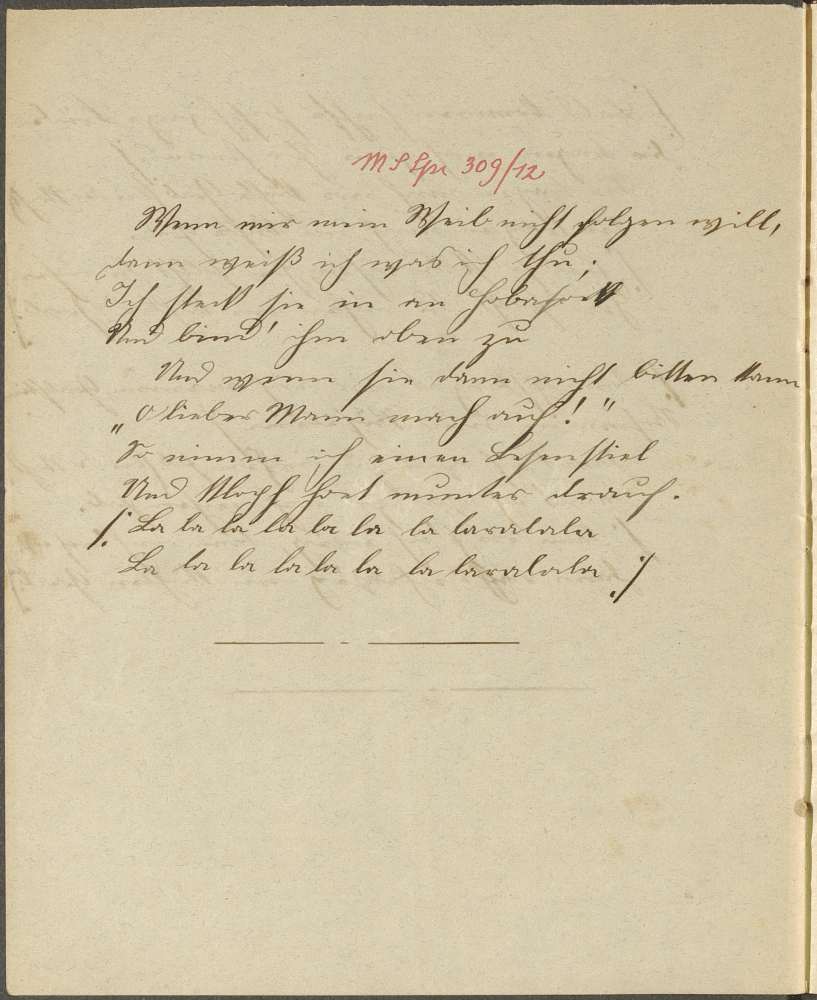 309/12
Wenn mir mein Weib nicht folgen will,
dann weiß ich was ich thu;
Ich steck sie in an Hobasock
Und bind' ihn oben zu
Und wenn sie dann nicht bitten kann
„O lieber Mann mach auf!"
So nimm ich einen Besenstiel
Und klopf fest munter drauf.
/: La la la la la la la laralala
La la la la la la la laralala :/